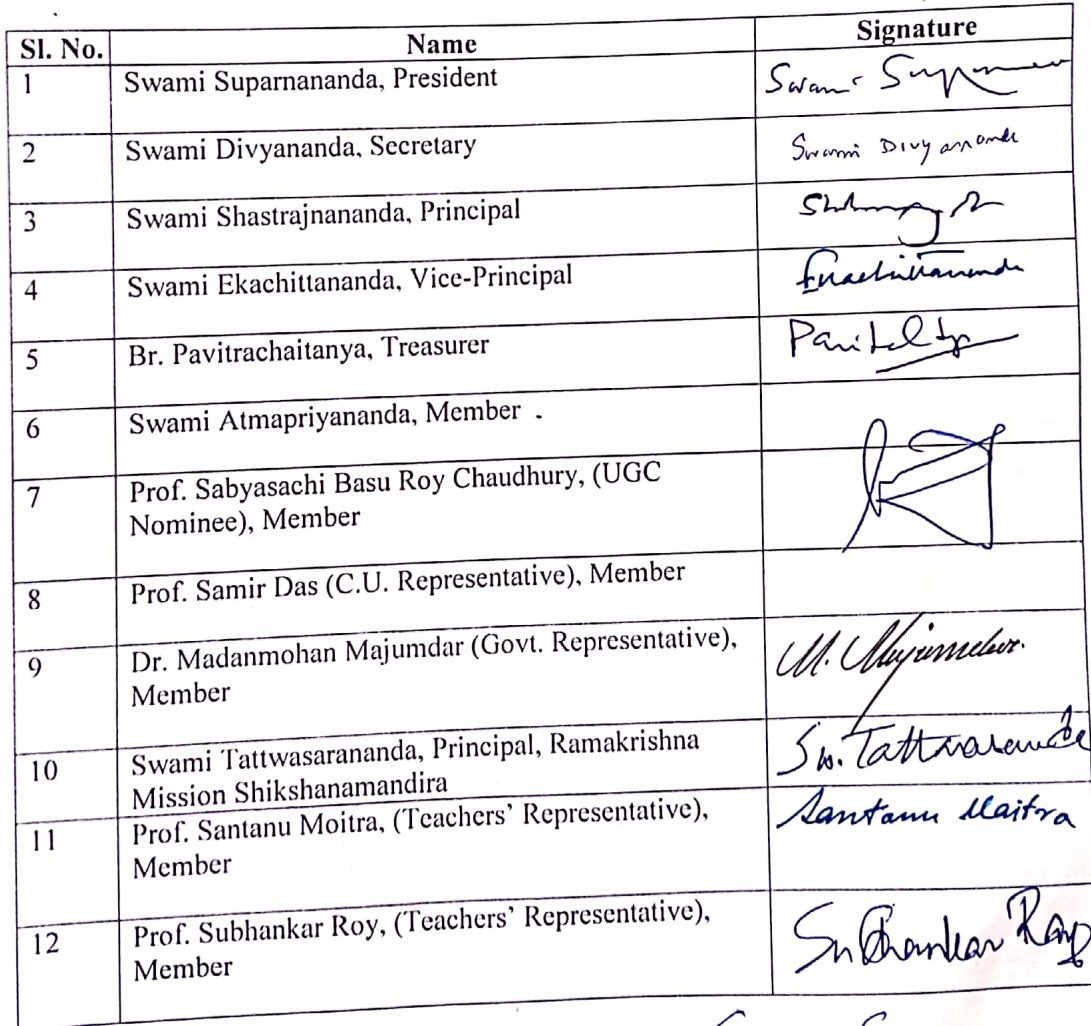 Sl. No. Name Signature
1 Swami Suparnananda, President Swami
2 Swami Divyananda, Secretary Swami Divyananda
3 Swami Shastrajnananda, Principal
4 Swami Ekachittananda, Vice-Principal Ekachittananda
5 Br. Pavitrachaitanya, Treasurer
6 Swami Atmapriyananda, Member .
7 Prof. Sabyasachi Basu Roy Chaudhury, (UGC
Nominee), Member
8 Prof. Samir Das (C.U. Representative), Member
9 Dr. Madanmohan Majumdar (Govt. Representative), M. Majumdar.
Member
10 Swami Tattwasarananda, Principal, Ramakrishna Sw.
Mission Shikshanamandira
11 Prof. Santanu Moitra, (Teachers' Representative), Santanu Maitra
Member
12 Prof. Subhankar Roy, (Teachers' Representative), Subhankar Roy
Member